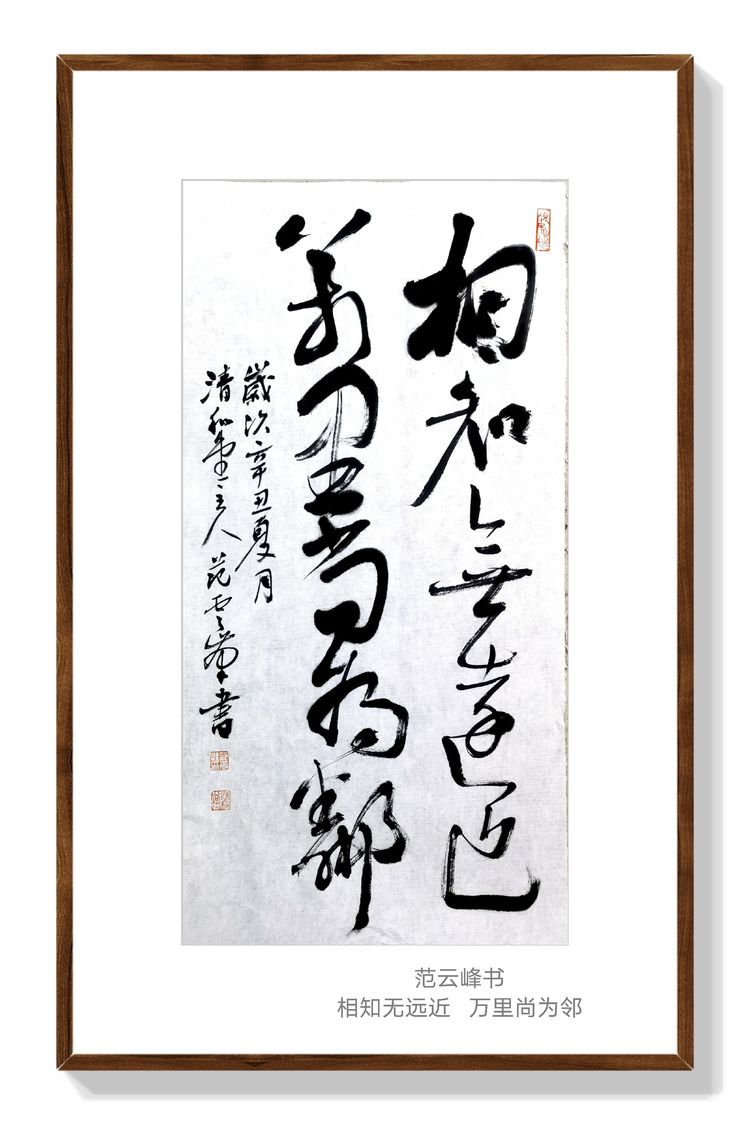 相知無遠近
萬里尚為鄰
歲次辛丑夏月
清和堂主人范云峰書
范云峰书
相知无远近 万里尚为邻